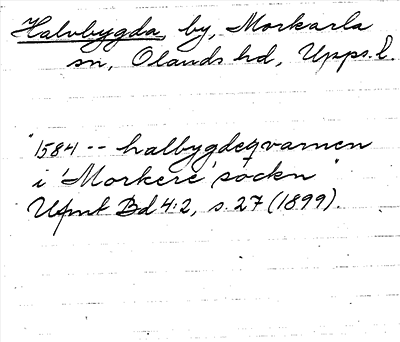 Halvbygda by, Morkarla
sn, Olands hd, Upps. l.
"1584 -- halbygdeqvarnen
i 'Morkere' sockn"
Upmt Bd 4:2, s. 27 (1899).